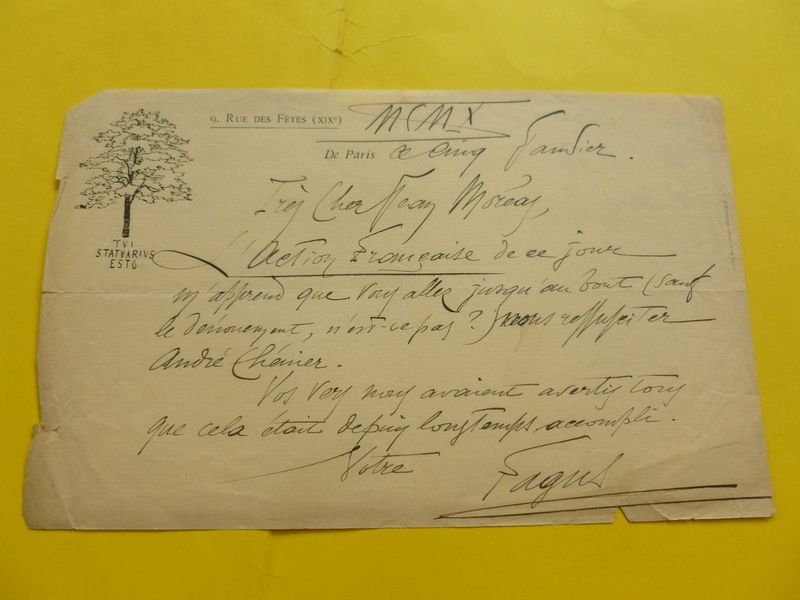 9. RUE DES FÊTES (XIXe)
MCMX
De Paris ce cinq Janvier.
Très Cher Jean Moréas,
TVI
STATVARIVS
ESTO
L'Action Française de ce jour
m'apprend que vous allez jusqu'au bout (sauf
le dénouement, n'est-ce pas ?) nous ressusciter
André Chénier.
Vos vers nous avaient avertis tous
que cela était depuis longtemps accompli.
Votre
Fagus